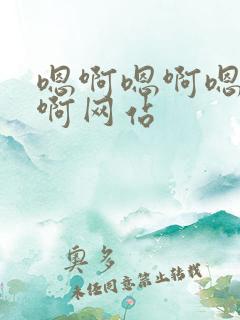 嗯啊嗯啊嗯
啊网站
奥多
未经同意禁止转载